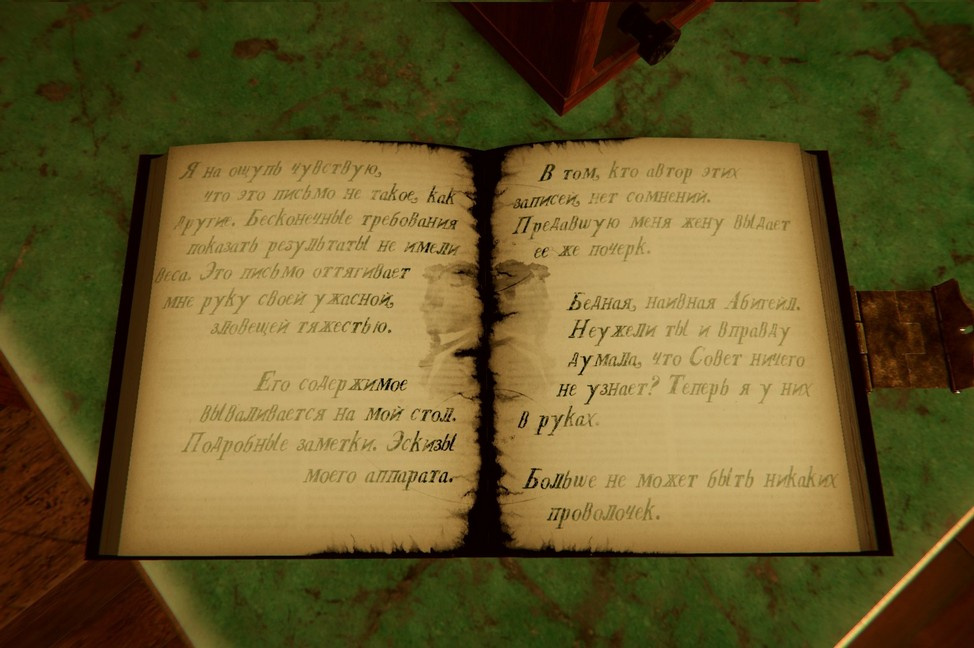 Я на ощупь чувствую,
что это письмо не такое, как
другие. Бесконечные требования
показать результаты не имели
веса. Это письмо оттягивает
мне руку своей ужасной,
зловещей тяжестью.
Его содержимое
вываливается на мой стол.
Подробные заметки. Эскизы
моего аппарата.
В том, кто автор этих
записей, нет сомнений.
Предавшую меня жену выдает
ее же почерк.
Бедная, наивная Абигейл.
Неужели ты и вправду
думала, что Совет ничего
не узнает? Теперь я у них
в руках.
Больше не может быть никаких
проволочек.